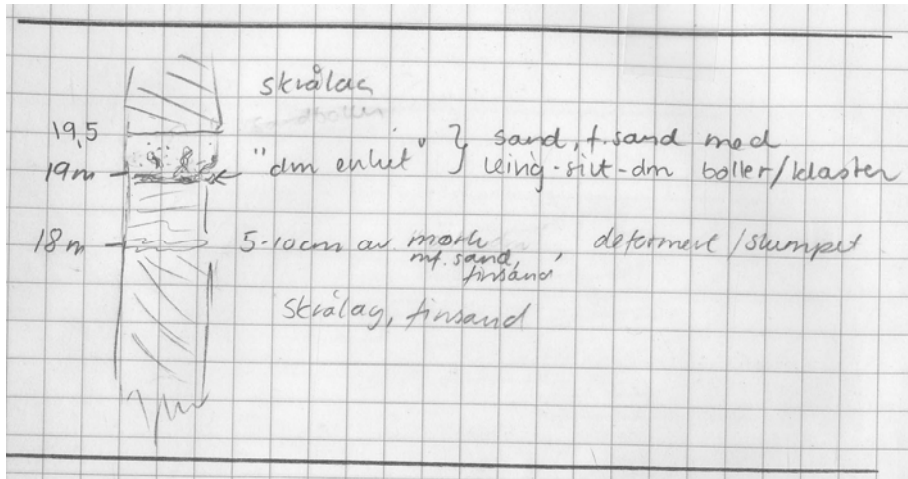 skrålag
19,5
"dm enhet" } sand, f.sand med
leirig-silt-dm boller/klaster
19m
18m
5-10cm av mørk mf. sand, finsand, deformert/slumpet
skrålag, finsand